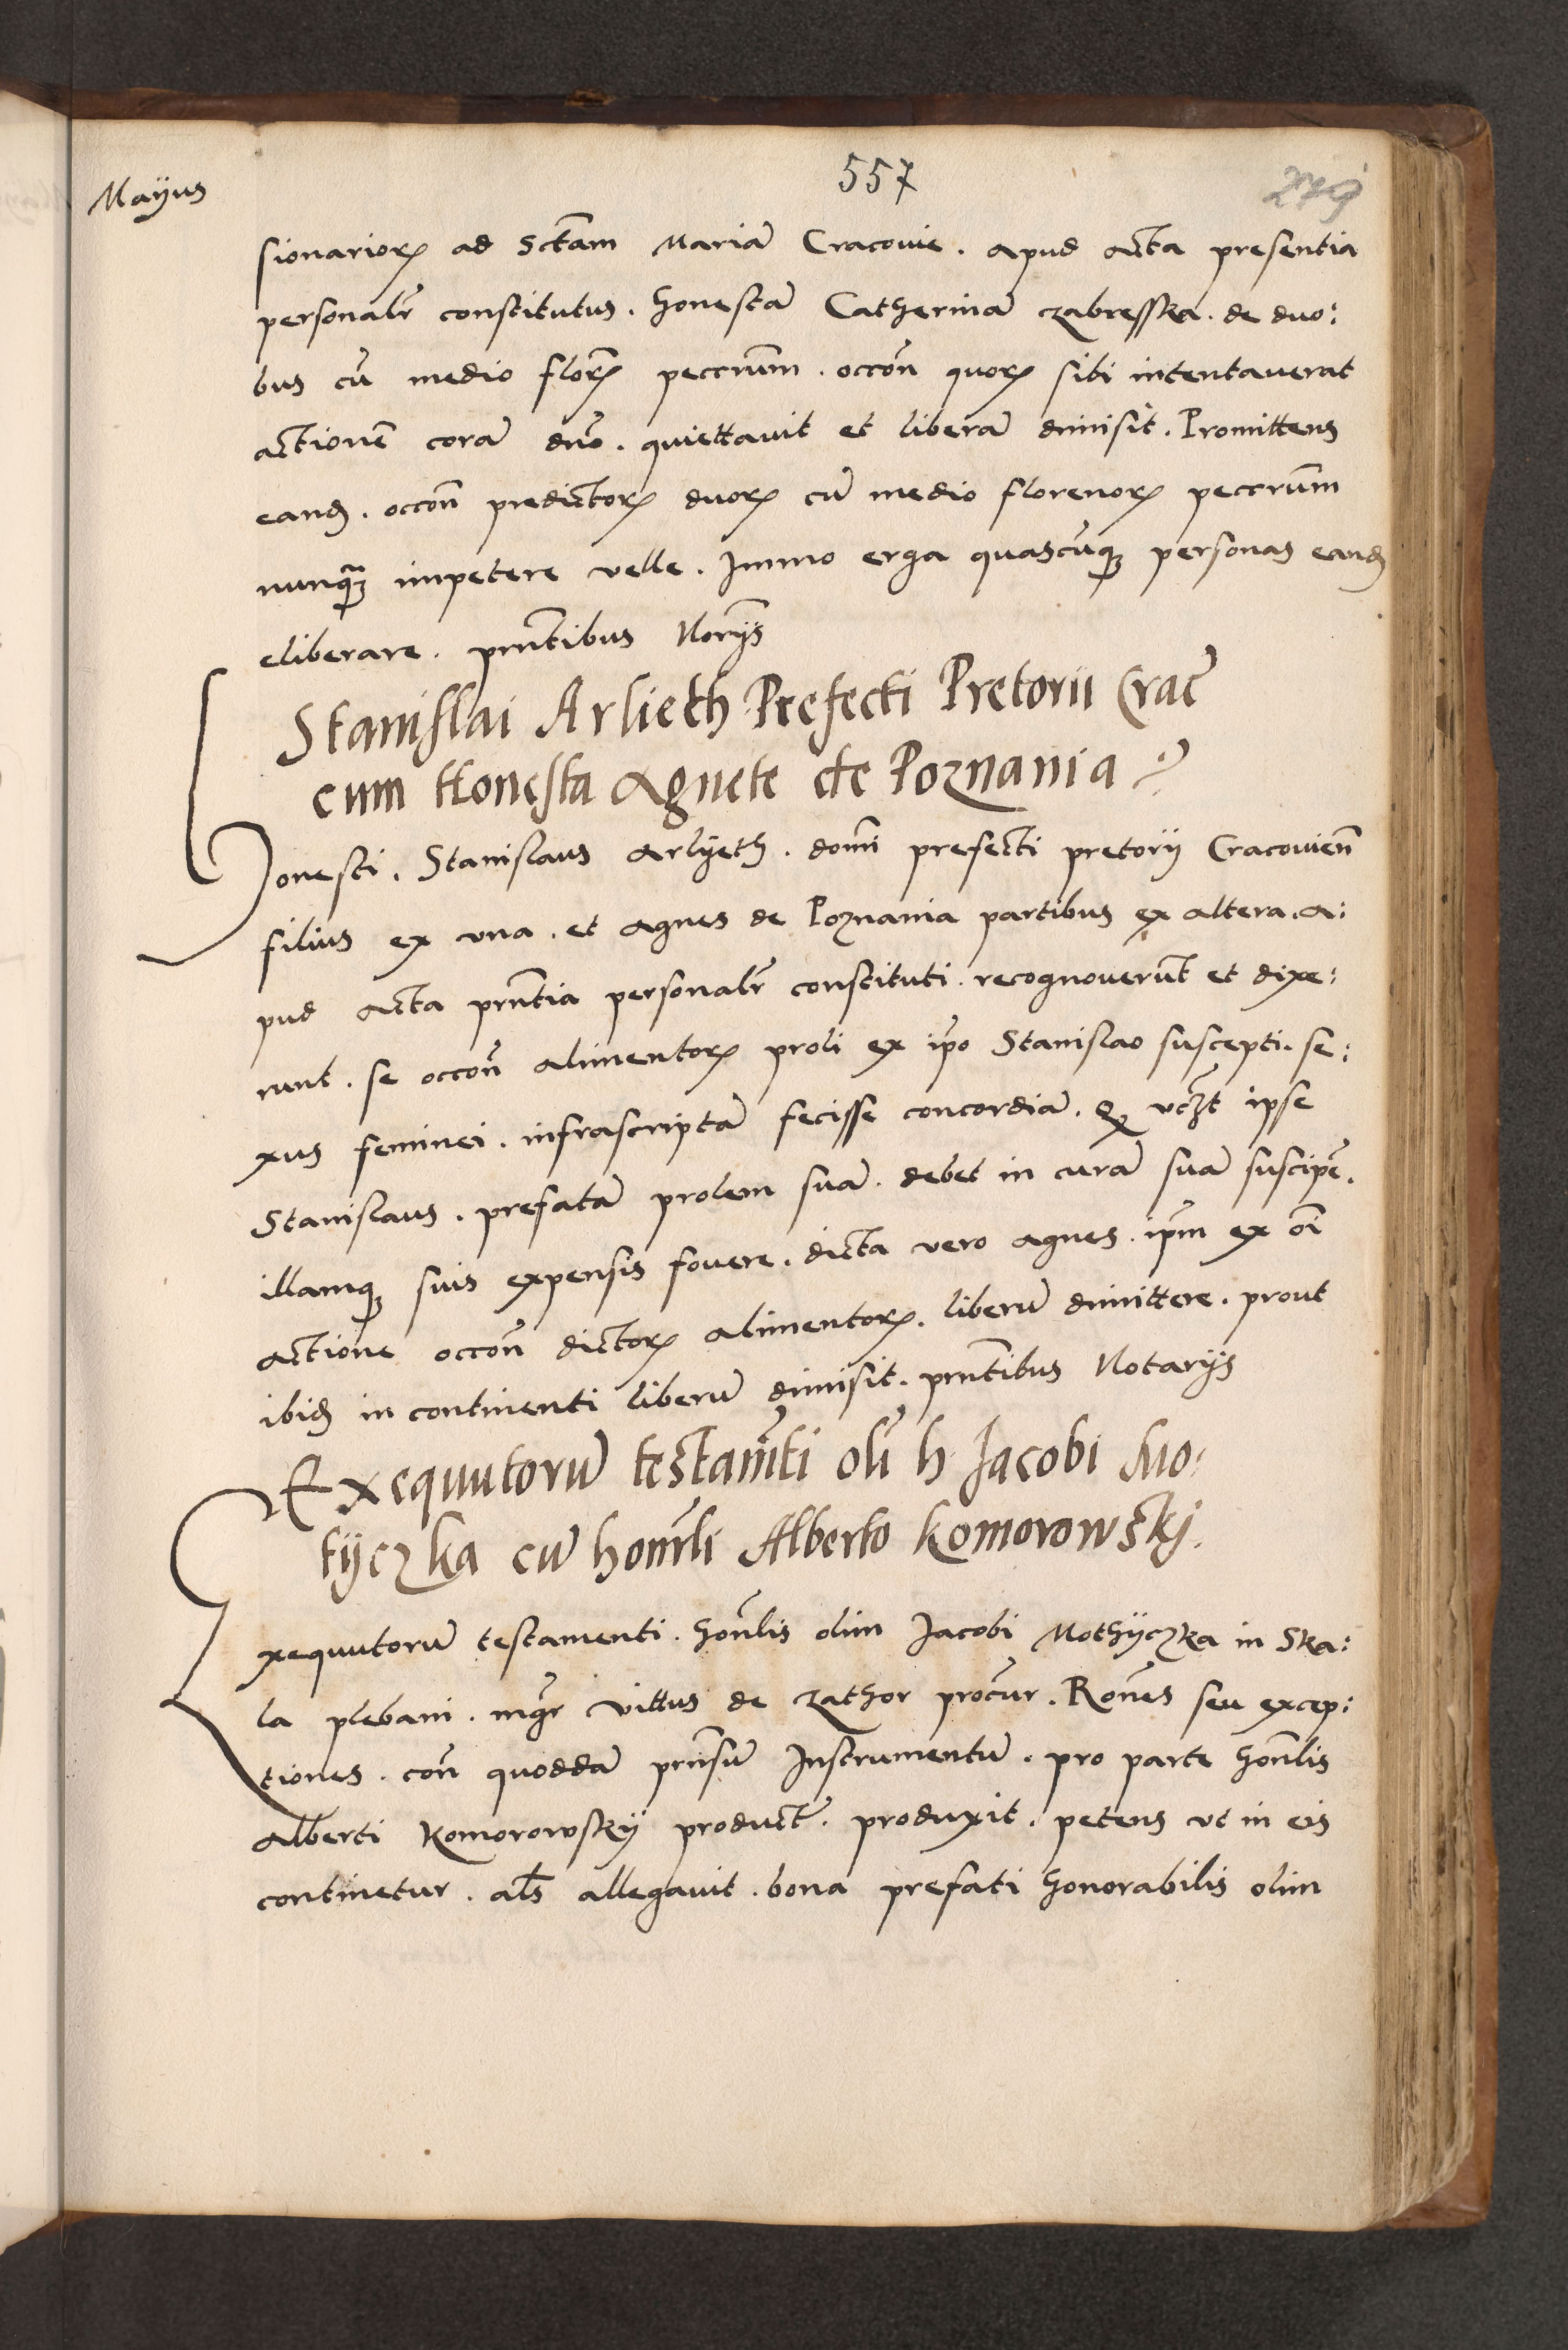 Mayus
557
279
sionarioꝝ ad Sctam Mariā Cracouie . apud acta presentia
personalr̄ constitutus . honestā Catherinā czabresska . de duo:
bus cū medio floꝝ peccnīm . occōn quoꝝ sibi intentauerat
actionē corā dn̄o . quiettauit et liberā dimisit . Promittens
eandꝫ . occōn predictoꝝ duoꝝ cū medio florenoꝝ peccrūm
nunqꝫ impetere velle . Immo erga quascūqꝫ personas eandꝫ
eliberare . prn̄tibus Norijs
Stanislai Arlieth Prefecti Pretorii Crac̄
cum Honesta Agnete de Poznania
Honesti . Stanislaus Arlyeth . domī prefecti pretorij Cracouien̄
filius ex vna . et Agnes de Poznania partibus ex altera . a:
pud acta prn̄tia personalr̄ constituti . recognouerūt et dixe:
runt . se occōn alimentoꝝ proli ex ip̄o Stanislao suscepti . se:
xus feminei . infrascriptā fecisse concordiā . Qꝫ vcꝫt ipse
Stanislaus . prefatā prolem suā . debet in curā suā suscipē .
illamqꝫ suis expensis fouere . dicta vero Agnes . ip̄m ex oī
actione occōn dictoꝝ alimentoꝝ . liberū dimittere . prout
ibidꝫ in continenti liberū dimisit . prn̄tibus Notarijs
Exequutorū testam̄ti olī h Jacobi Mo:
tyczka cū honrl̄i Alberto Komorowskj .
Exequutorū testamenti . hon̄lis olim Jacobi Mothyczka in Ska:
la plebani . mgr̄ vittus de zathor procur̄ . Rōnes seu excep:
tiones . con̄ quoddā prn̄sū Instrumentū . pro parte hon̄lis
Alberti Komorowsky product̄ . produxit . petens vt in eis
continetur . als̄ allegauit . bona prefati honorabilis olim